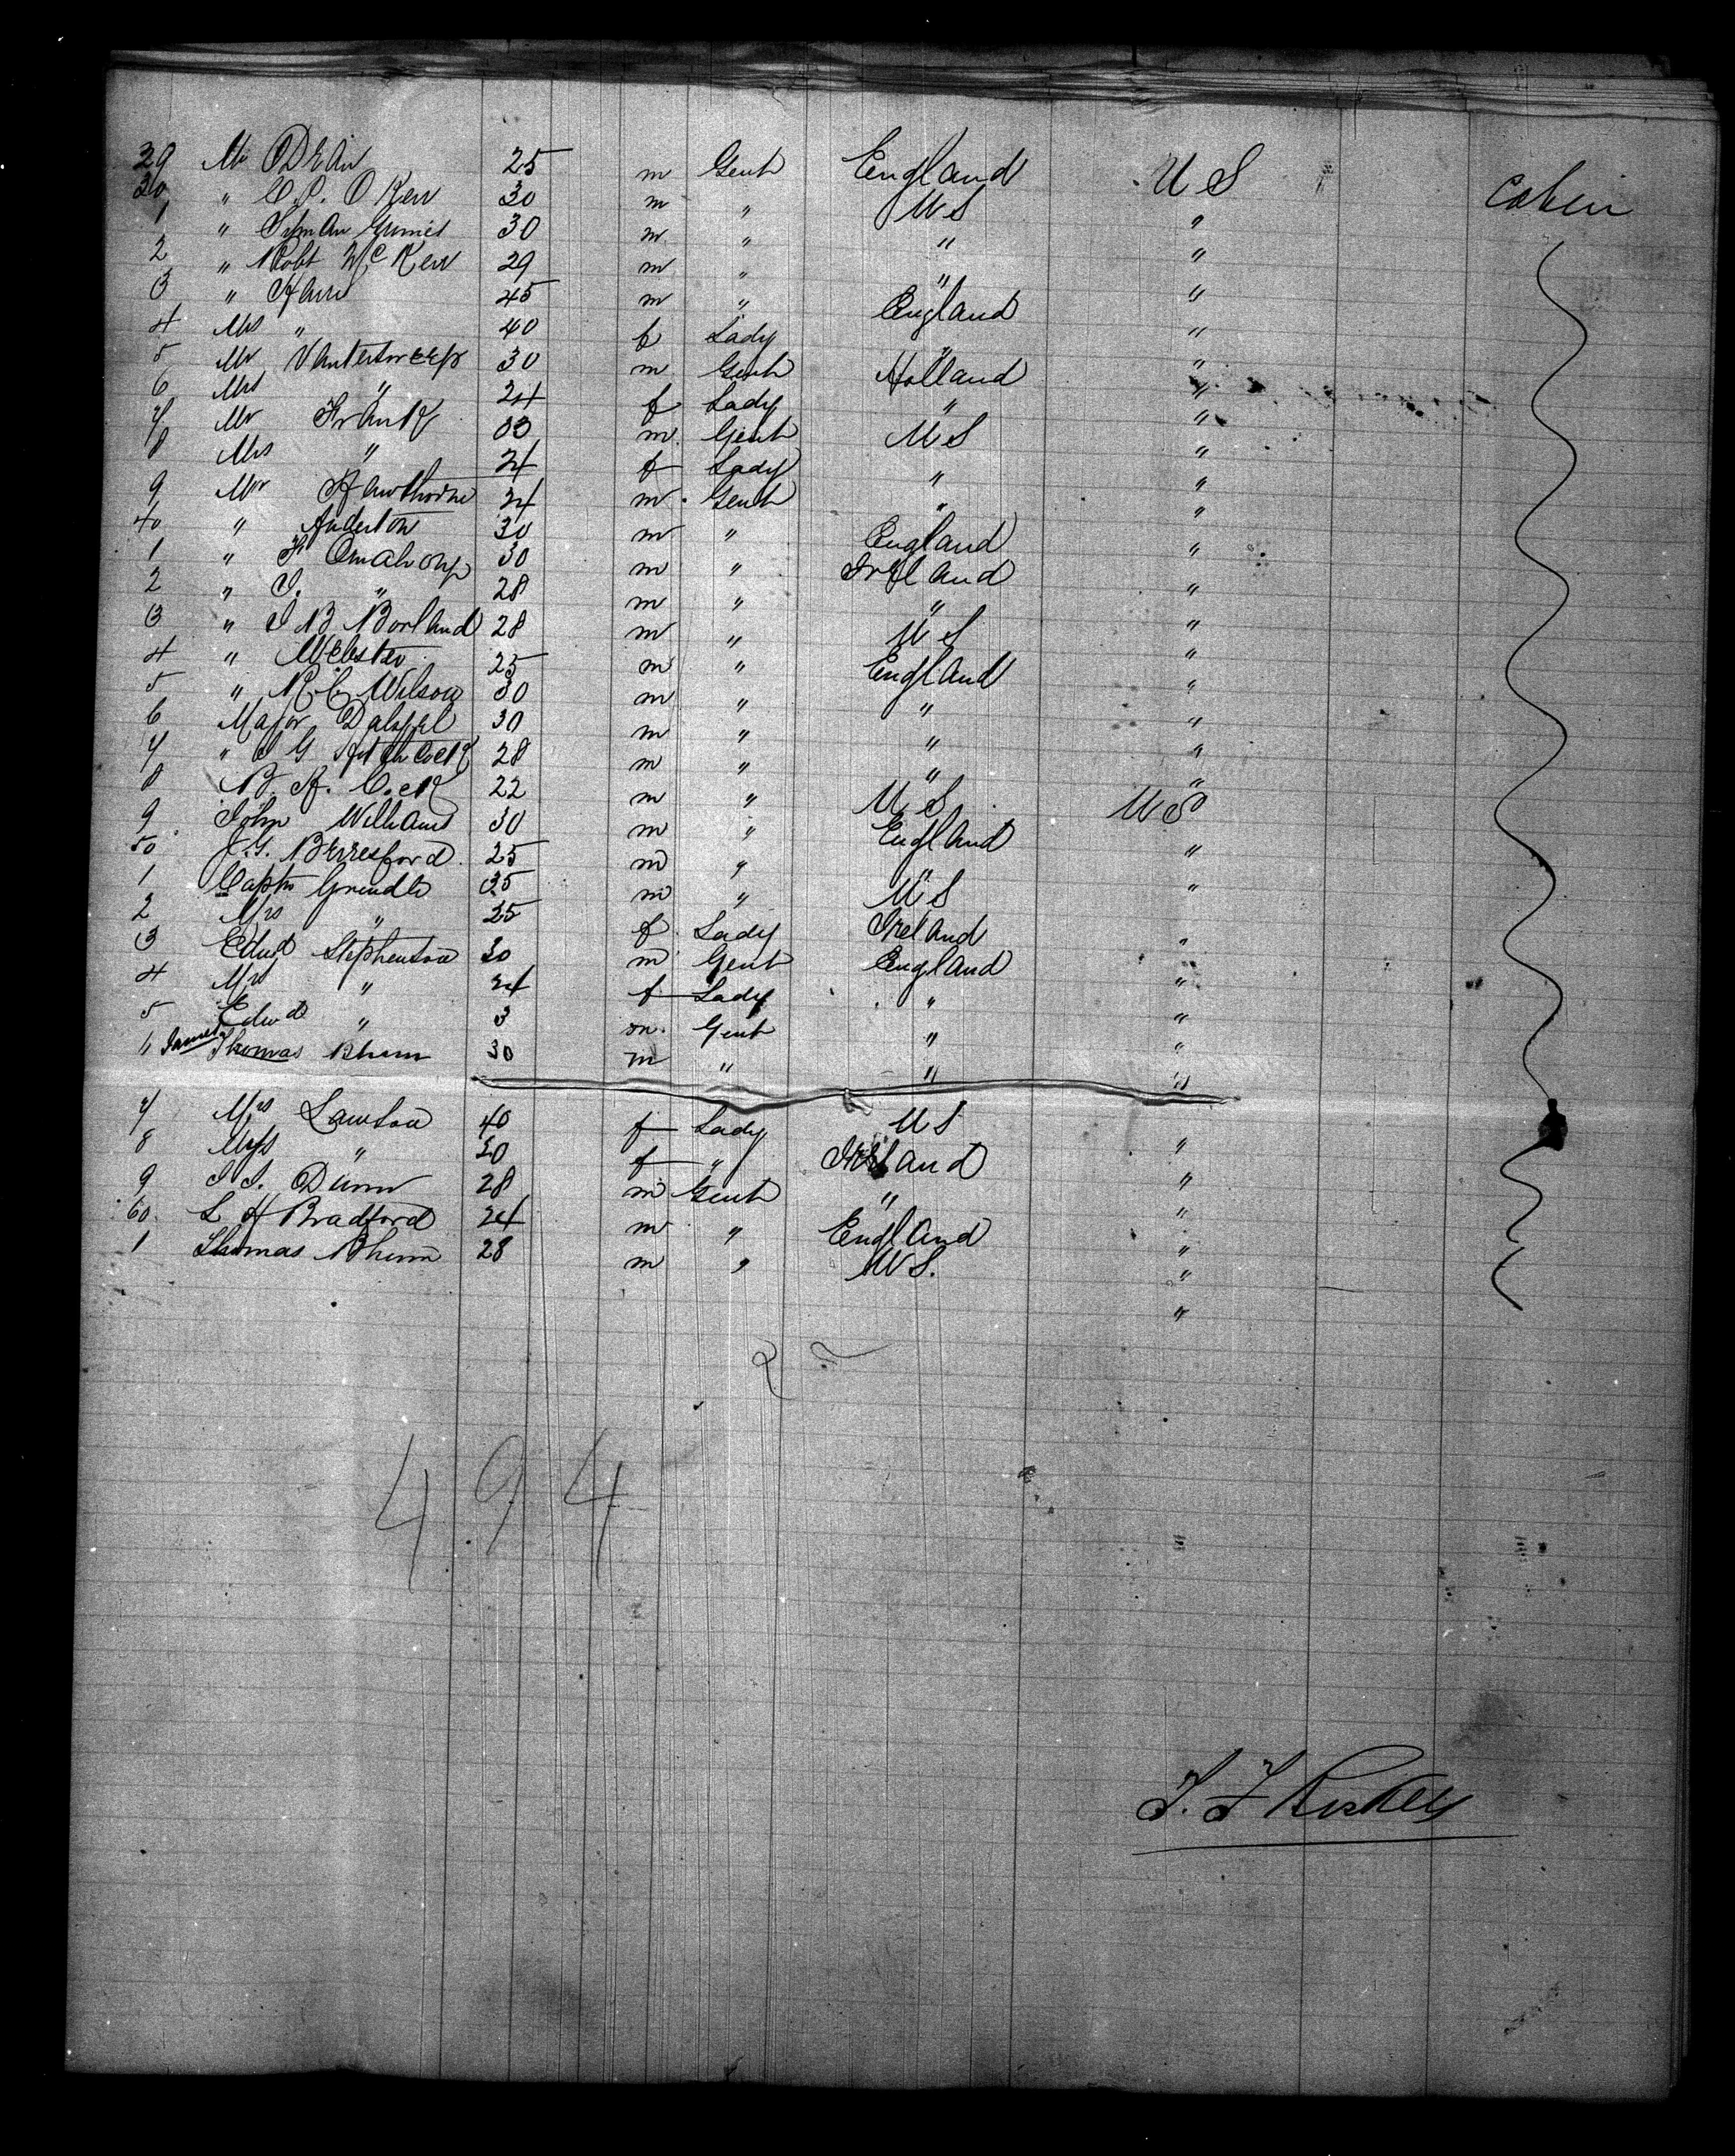 29 Mr Dean 25 m Gent England U S Cabin
30 " C. P. O Kerr 30 m " U S "
1 " Lyman Grimes 30 m " " "
2 " Robt McKerr 29 m " " "
3 " 45 m " England "
4 Mrs " 40 f Lady " "
5 Mr Vantstweep 30 m Gent Holland "
6 Mrs " 24 f Lady " "
7 Mr Frank 33 m Gent U S "
8 Mrs " 24 f Lady " "
9 Mr Hawthorne 24 m Gent " "
40 " Anderton 30 m " England "
1 " F Omahony 30 m " Ireland "
2 " J. " 28 m " " "
3 " J B Borland 28 m " U S "
4 " Webster 25 m " England "
5 " R. C. Wilson 30 m " " "
6 Major Dalzel 30 m " " "
7 " J G Hitchcock 28 m " " "
8 B. H. Cock 22 m " U S U S
9 John Williams 30 m " England "
50 J. G. Berresford 25 m " " "
1 Captn Grindle 35 m " U S
2 Mrs " 25 f Lady Ireland "
3 Edwd Stephenson 30 m Gent England "
4 Mrs " 24 f Lady " "
5 Edwd " 3 m Gent " "
6 James Thomas 30 m " " "
7 Mrs Lawson 40 f Lady U S "
8 Miss " 20 f " Ireland "
9 J. J. Dunn 28 m Gent " "
60 L H Bradford 24 m " England "
1 Thomas 28 m " U S. "
"
494